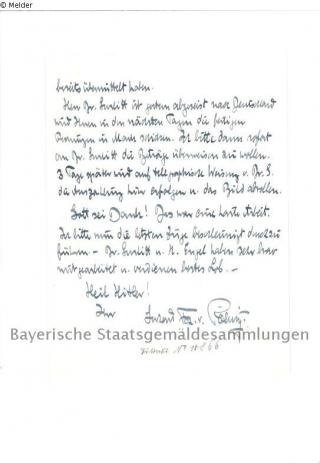 © Melder
bereits übermittelt haben.
Herr Dr. Gurlitt ist gestern abgereist nach Deutschland
und Ihnen in den nächsten Tagen die fertigen
in Mark Ich bitte dann sofort
an Dr. Gurlitt die Beträge überweisen zu wollen.
3 Tage später wird auf telephonische Weisung v. Dr. G.
die Auszahlung hier erfolgen u. das Bild abrollen.
Gott sei Dank! Das war eine harte Arbeit.
Ich bitte nun die letzten Züge beschleunigt durchzu
führen – Dr. Gurlitt u. H. Engel haben sehr brav
mitgearbeitet u. verdienen bestes Lob. –
Heil Hitler!
Ihr
v.
Bayerische Staatsgemäldesammlungen
N°